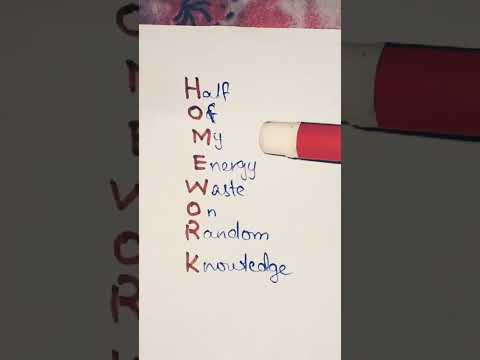 Half
Of
My
Energy
Waste
On
Random
Knowledge